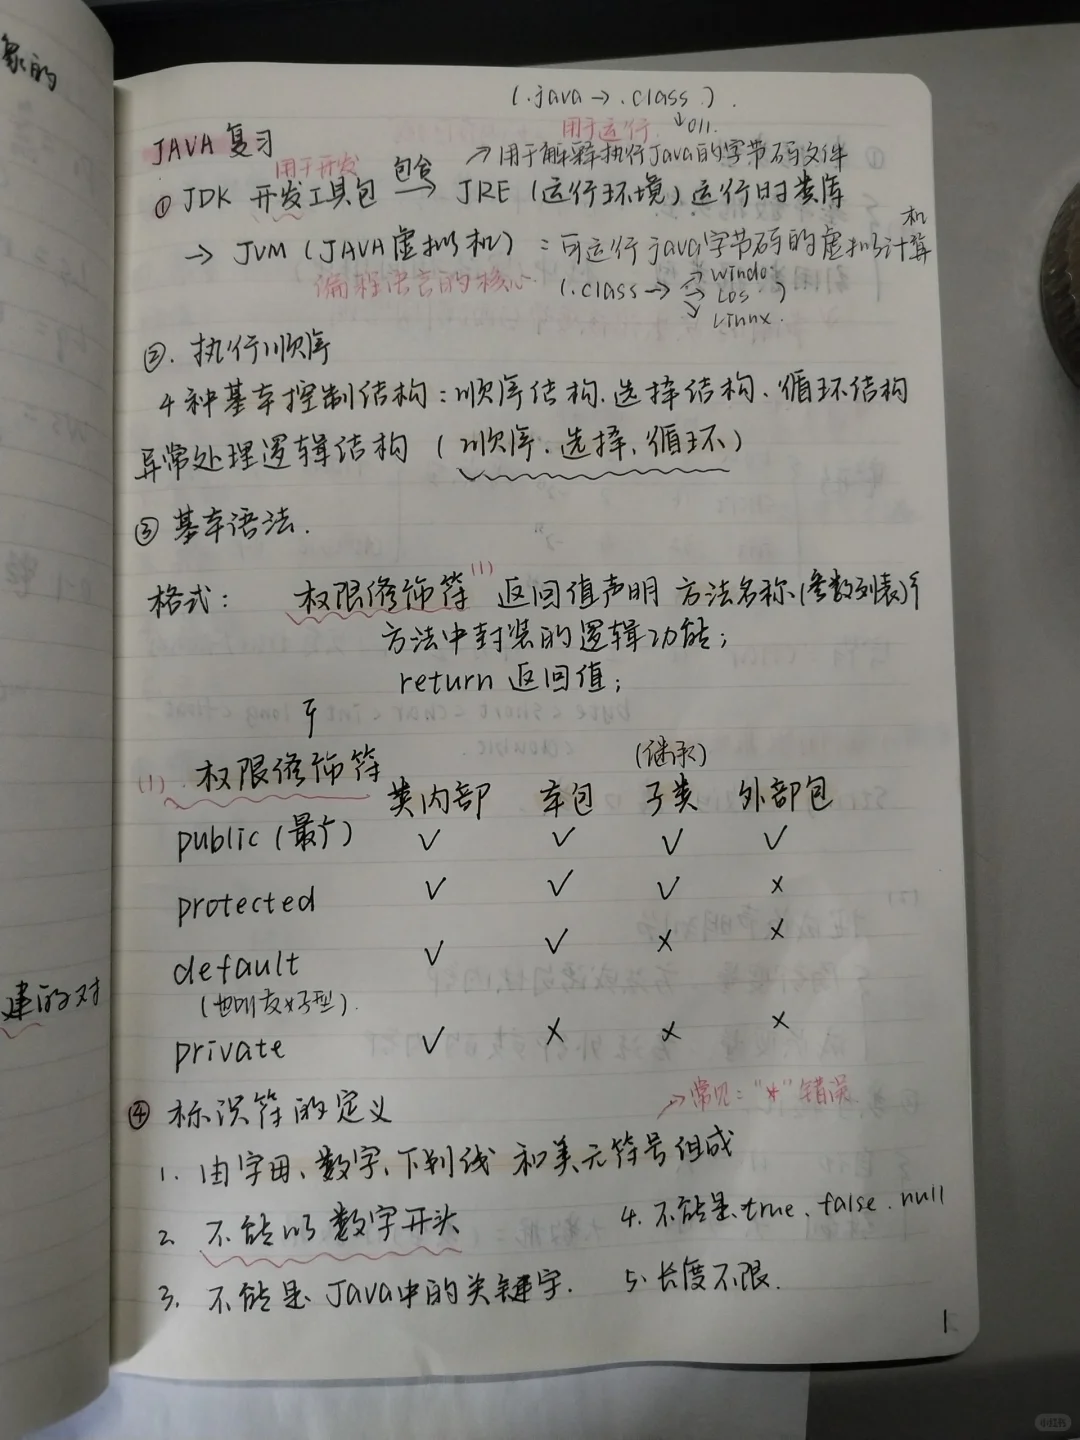 象的
(.java → .class).
↓011.
JAVA 复习
用于运行.
用于开发
包含
↗用于解释执行Java的字节码文件
① JDK 开发工具包 → JRE (运行环境) 运行时类库
→ JVM (JAVA虚拟机) = 可运行java字节码的虚拟计算机
编程语言的核心.
(.class → windo
→ ios )
↘ Linnx.
②. 执行顺序
4种基本控制结构: 顺序结构、选择结构、循环结构
异常处理逻辑结构 (顺序、选择、循环)
③ 基本语法.
格式: 权限修饰符(1) 返回值声明 方法名称(参数列表){
方法中封装的逻辑功能;
return 返回值;
}
(1) 权限修饰符 类内部 本包 子类 外部包
(继承)
public (最广) ✓ ✓ ✓ ✓
protected ✓ ✓ ✓ ×
default ✓ ✓ × ×
(也叫友好型).
private ✓ × × ×
建的对
④ 标识符的定义
↗常见: "*" 错误
1. 由字母、数字、下划线 和美元符号组成
2. 不能以数字开头
4. 不能是、true、false、null
3. 不能是 Java中的关键字.
5. 长度不限.
1
小红书